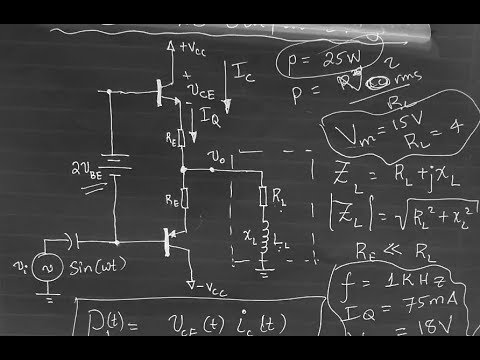 +Vcc
+
VCE
-
IC
IQ
RE
Vo
2VBE
RE
RL
XL
LL
vi
Sin(wt)
-Vcc
P = 25W
P =
rms
RL
Vm = 15V
RL = 4
ZL = RL + jXL
|ZL| = √RL² + XL²
RE << RL
f = 1KHz
IQ = 75mA
= 18V
P(t) = VCE(t) ic(t)